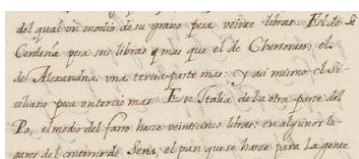 del qual un modio de su grano pesa veinte libras. El de Si
Cerdeña pesa seis libras y mas que el de Chersoneso, el
de Alexandria una tercia parte mas: y asi mismo el Si
ciliano pesa un tercio mas. En Italia de la otra parte del
Po, el modio del farro haze veinticinco libras: en algunos lu
gares del contorno de Sena, el pan que se haze para la gente